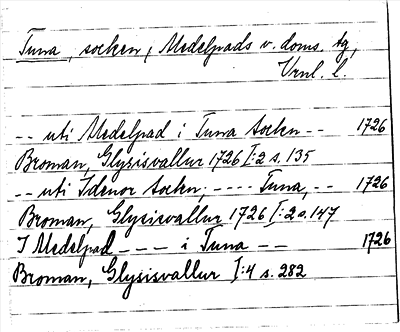 Tuna, socken, Medelpads v. doms. tg,
Vrnl. l.
-- uti Medelpad i Tuna Socken -- 1726
Broman, Glysisvallur 1726 I:2 s. 135
-- uti Idenor Sockn; ---- Tuna, -- 1726
Broman, Glysisvallur 1726 I:2 s. 147
I Medelpad --- i Tuna -- 1726
Broman, Glysisvallur I:4 s. 282